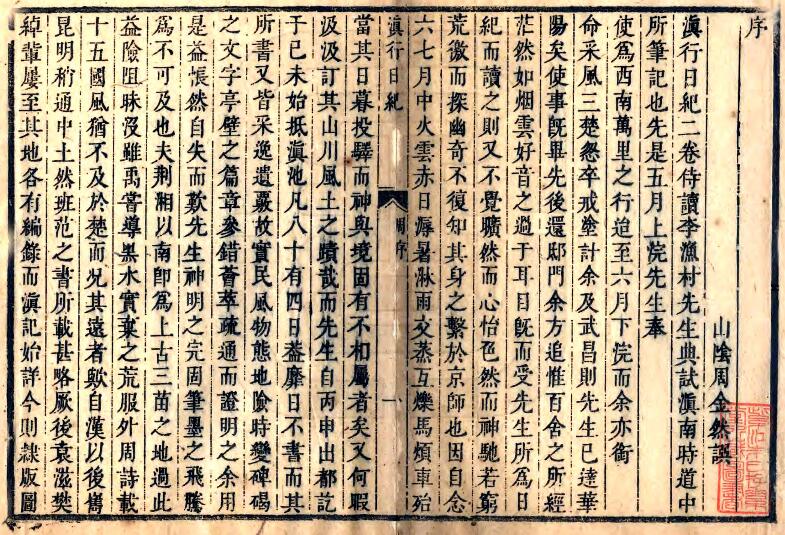 序
山陰周金然譔
滇行日紀二卷侍讀李漁村先生典試滇南時道中
所筆記也先是五月上浣先生奉
使爲西南萬里之行迨至六月下浣而余亦銜
命采風三楚怱卒戒塗計余及武昌則先生已達華
陽矣使事旣畢先後還邸門余方追惟百舍之所經
茫然如烟雲好音之過于耳目旣而受先生所爲日
紀而讀之則又不覺曠然而心怡色然而神馳若窮
荒徼而探幽奇不復知其身之繫於京師也因自念
六七月中火雲赤日溽暑淋雨交蒸互爍馬煩車殆
滇行日紀
周序
一
當其日暮投驛而神與境固有不相屬者矣又何暇
汲汲訂其山川風土之蹟哉而先生自丙申出都訖
于己未始抵滇池凡八十有四日葢靡日不書而其
所書又皆采逸遺覈故實民風物態地險時變碑碣
之文字亭壁之篇章參錯薈萃疏通而證明之余用
是益悵然自失而歎先生神明之完固筆墨之飛騰
爲不可及也夫荆湘以南卽爲上古三苗之地過此
益險阻昧沒雖禹嘗導黑水實棄之荒服外周詩載
十五國風猶不及於楚而况其遠者歟自漢以後嶲
昆明稍通中土然班范之書所載甚略厥後袁滋樊
綽輩屢至其地各有編錄而滇記始詳今則隸版圖